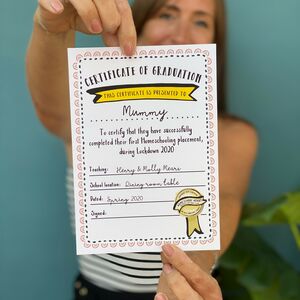 CERTIFICATE OF GRADUATION
THIS CERTIFICATE IS PRESENTED TO
Mummy
To certify that they have successfully
completed their first Homeschooling placement,
during Lockdown 2020
Teaching: Henry & Molly Meiri
School location: Dining room table
Dated: Spring 2020
Signed: